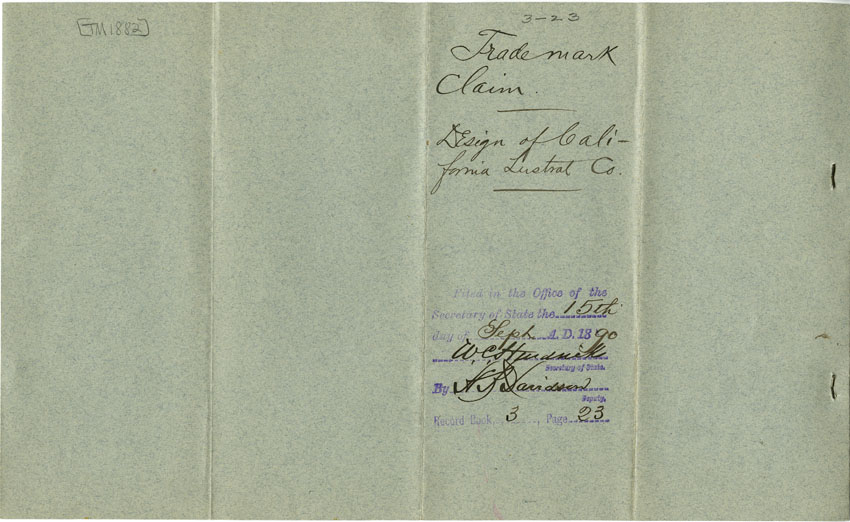 [TM1882]
3-23
Trademark
Claim.
Design of Cali-
fornia Lustral Co.
Filed in the Office of the
Secretary of State the 15th
day of Sept. A. D. 1890
W. C. Hendricks
Secretary of State.
By Davidson
Deputy.
Record Book 3, Page 23